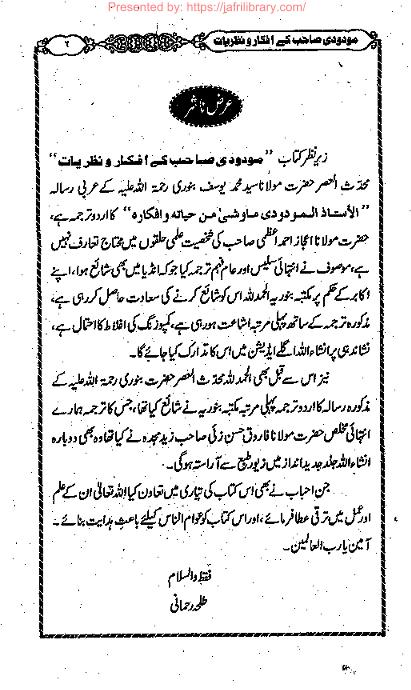 Presented by: https://jafrilibrary.com/
مودودی صاحب کے افکار و نظریات
۲
عرض ناشر
زیر نظر کتاب "مودودی صاحب کے افکار و نظریات"
محدث العصر حضرت مولانا سید محمد یوسف بنوری رحمۃ اللہ علیہ کے عربی رسالہ
"الأستاذ المودودی ماوشیٔ من حیاتہ وافکارہ" کا اردو ترجمہ ہے،
حضرت مولانا اعجاز احمد اعظمی صاحب کی شخصیت علمی حلقوں میں محتاج تعارف نہیں
ہے، موصوف نے انتہائی سلیس اور عام فہم ترجمہ کیا جو کہ انڈیا میں بھی شائع ہوا، اپنے
اکابر کے حکم پر مکتبہ بنوریہ الحمدللہ اس کو شائع کرنے کی سعادت حاصل کر رہی ہے،
مذکورہ ترجمہ کے ساتھ پہلی مرتبہ اشاعت ہو رہی ہے، کمپوزنگ کی اغلاط کا احتمال ہے،
نشاندہی پر انشاء اللہ اگلے ایڈیشن میں اس کا تدارک کیا جائے گا۔
نیز اس سے قبل بھی الحمدللہ محدث العصر حضرت بنوری رحمۃ اللہ علیہ کے
مذکورہ رسالہ کا اردو ترجمہ پہلی مرتبہ مکتبہ بنوریہ نے شائع کیا تھا، جس کا ترجمہ ہمارے
انتہائی مخلص حضرت مولانا فاروق حسن زئی صاحب زید مجدہ نے کیا تھا وہ بھی دوبارہ
انشاء اللہ جلد جدید انداز میں زیور طبع سے آراستہ ہوگی۔
جن احباب نے بھی اس کتاب کی تیاری میں تعاون کیا اللہ تعالیٰ ان کے علم
اور عمل میں ترقی عطا فرمائے، اور اس کتاب کو عوام الناس کیلئے باعث ہدایت بنائے۔
آمین یا رب العالمین۔
فقط والسلام
طلحہ رحمانی